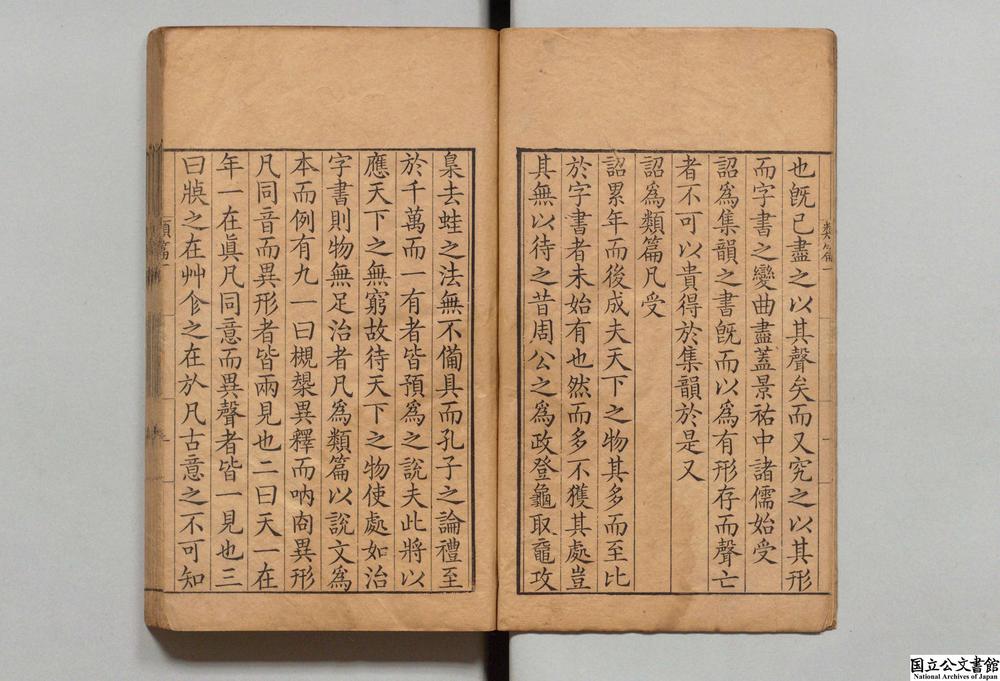 也旣已盡之以其聲矣而又究之以其形
而字書之變曲盡蓋景祐中諸儒始受
詔爲集韻之書旣而以爲有形存而聲亡
者不可以貴得於集韻於是又
詔爲類篇凡受
詔累年而後成夫天下之物其多而至比
於字書者未始有也然而多不獲其處豈
其無以待之昔周公之爲政登龜取黿攻
梟去蛙之法無不備具而孔子之論禮至
於千萬而一有者皆預爲之說夫此將以
應天下之無窮故待天下之物使處如治
字書則物無足治者凡爲類篇以說文爲
本而例有九一曰槻槼異釋而吶㕯異形
凡同音而異形者皆兩見也二曰天一在
年一在眞凡同意而異聲者皆一見也三
曰㹜之在艸㫃之在於凡古意之不可知
類篇一
国立公文書館
National Archives of Japan